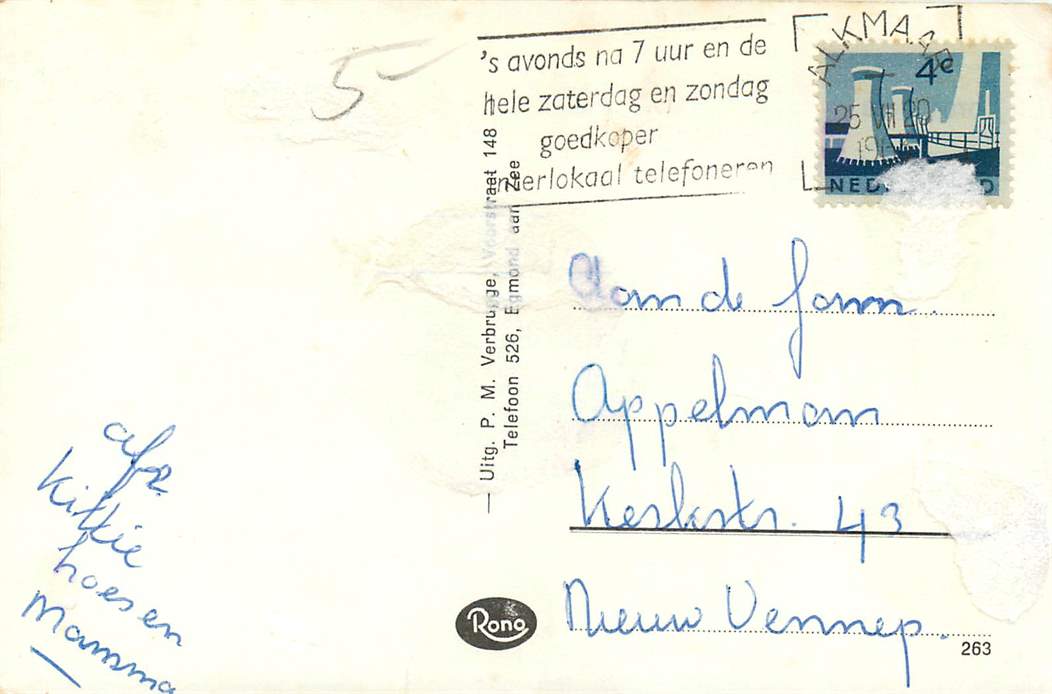 5-
's avonds na 7 uur en de
hele zaterdag en zondag
goedkoper
interlokaal telefoneren
ALKMAAR
25 VII 20
4c
NED D
— Uitg. P. M. Verbrugge, Voorstraat 148
Telefoon 526, Egmond aan Zee
Aan de fam.
Appelman
Kerkstr. 43
Nieuw Vennep.
afz.
Kittie
hoes en
Mamma
Rono
263